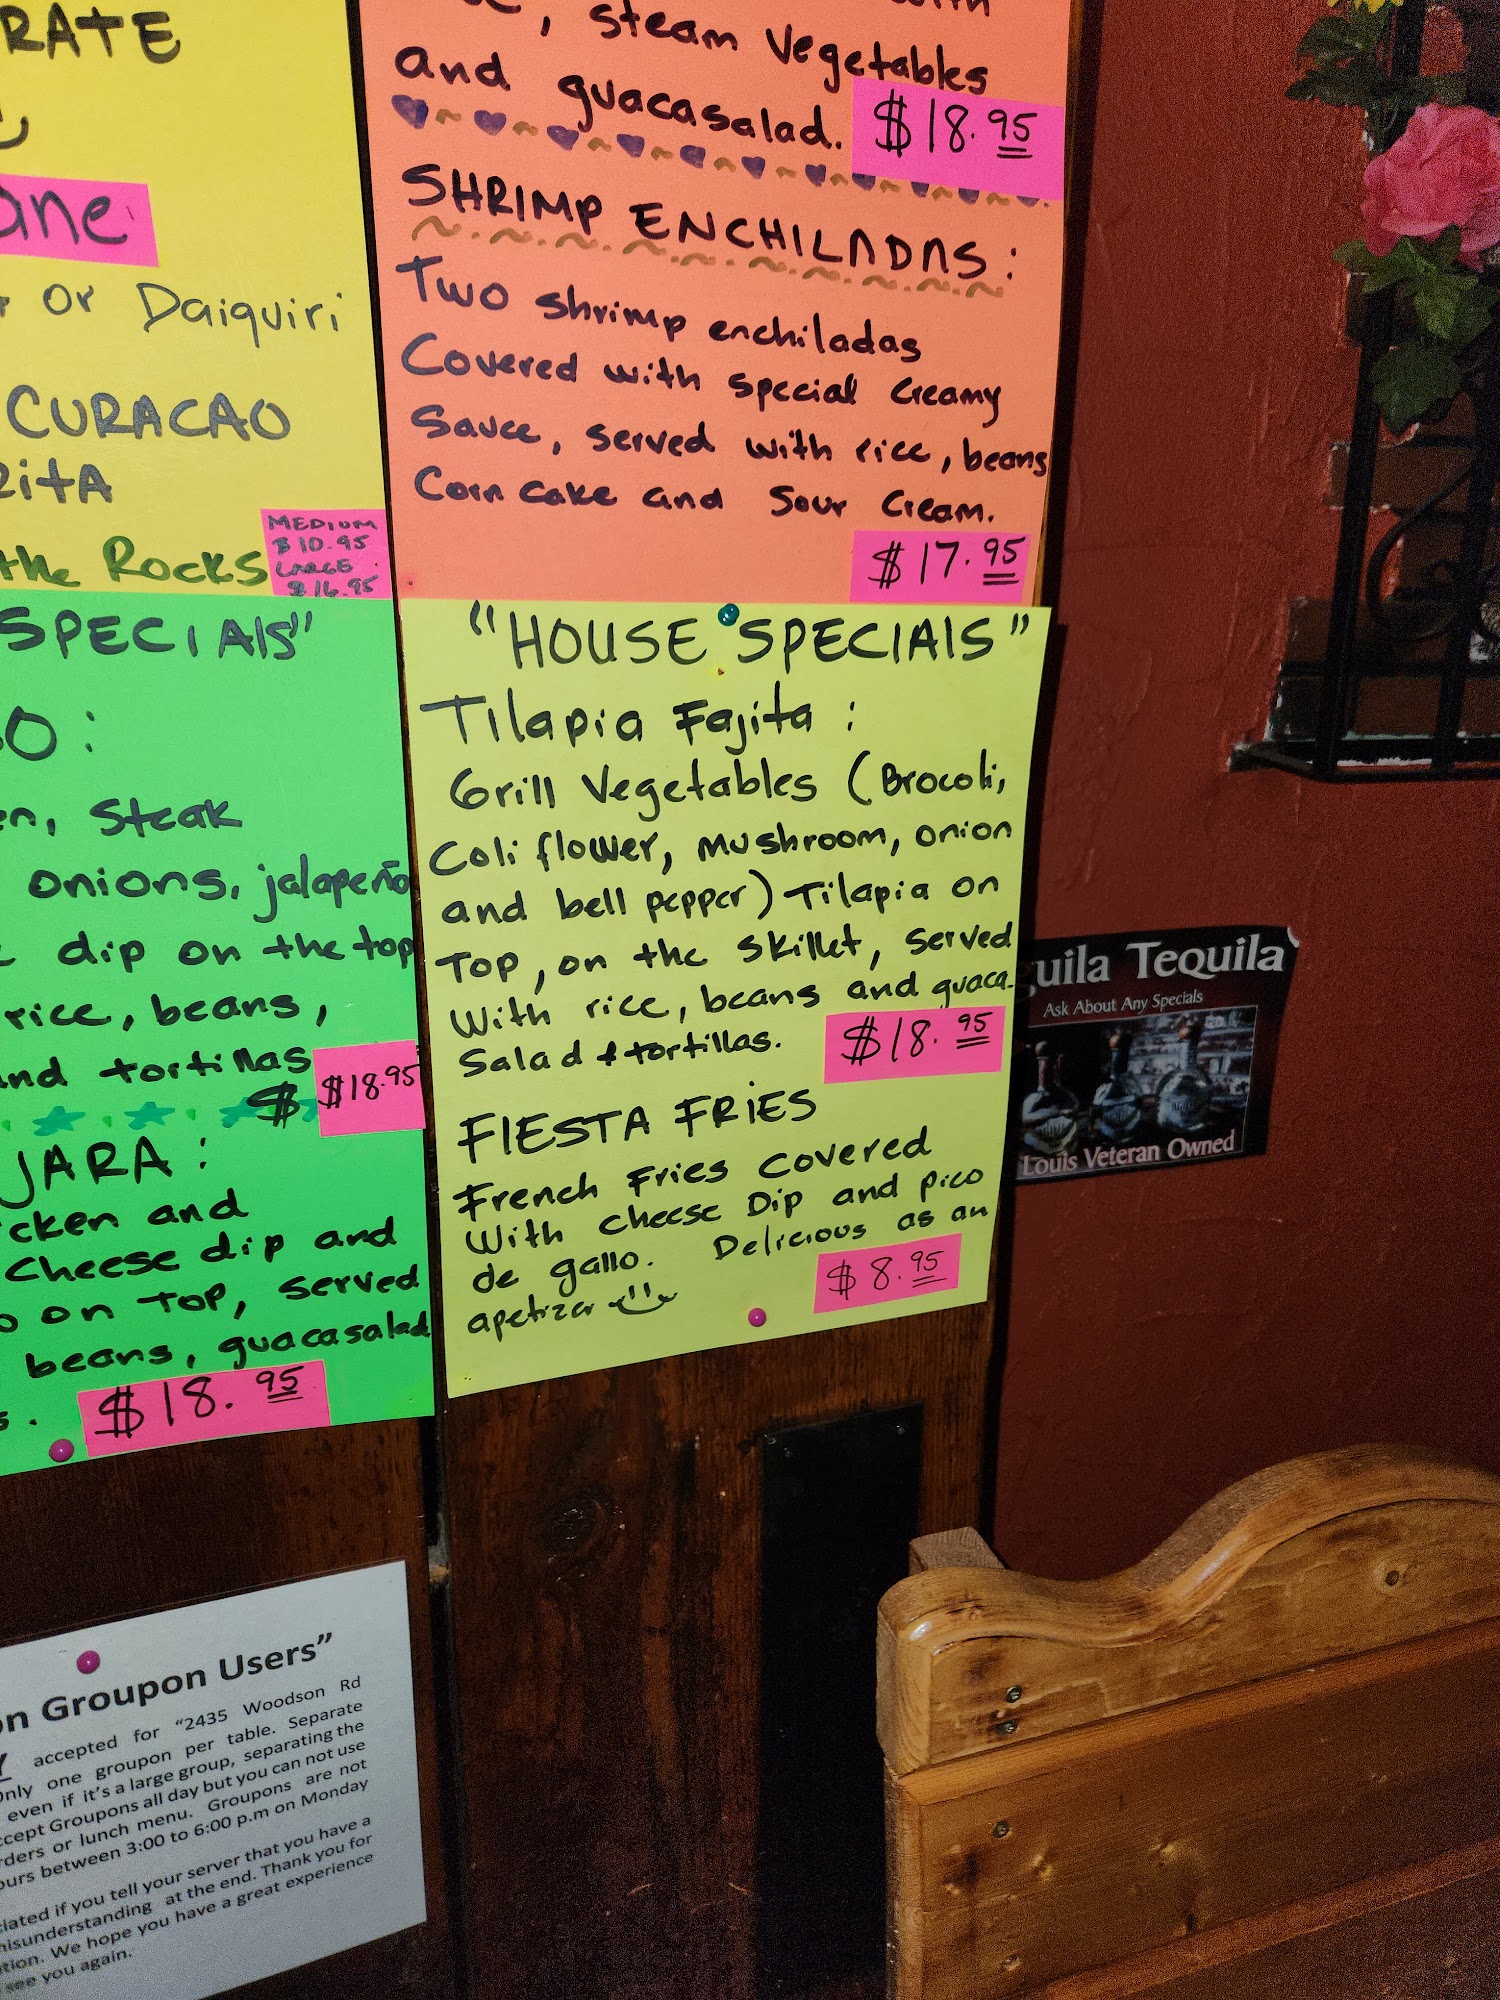 RATE
ane
or Daiquiri
CURACAO
RitA
the Rocks
MEDIUM
$10.95
LARGE
$16.95
SPECIAlS"
O:
en, Steak
onions, jalapeño
dip on the top
rice, beans,
and tortillas
$ $18.95
JARA:
cken and
Cheese dip and
o on Top, served
beans, guacasalad
s. $18.95
, steam Vegetables
and guacasalad. $18.95
SHRIMP ENCHILADAS:
Two shrimp enchiladas
Covered with special Creamy
Sauce, served with rice, beans
Corn cake and Sour Cream.
$17.95
"HOUSE SPECIAlS"
Tilapia Fajita:
Grill Vegetables (Brocoli,
Coliflower, mushroom, onion
and bell pepper) Tilapia on
Top, on the skillet, served
With rice, beans and guaca-
Salad & tortillas. $18.95
FIESTA FRiES
French Fries Covered
With cheese Dip and pico
de gallo. Delicious as an
apetizer $8.95
quila Tequila
Ask About Any Specials
Louis Veteran Owned
on Groupon Users"
accepted for "2435 Woodson Rd
Only one groupon per table. Separate
even if it's a large group, separating the
ccept Groupons all day but you can not use
rders or lunch menu. Groupons are not
ours between 3:00 to 6:00 p.m on Monday
ciated if you tell your server that you have a
misunderstanding at the end. Thank you for
tion. We hope you have a great experience
see you again.